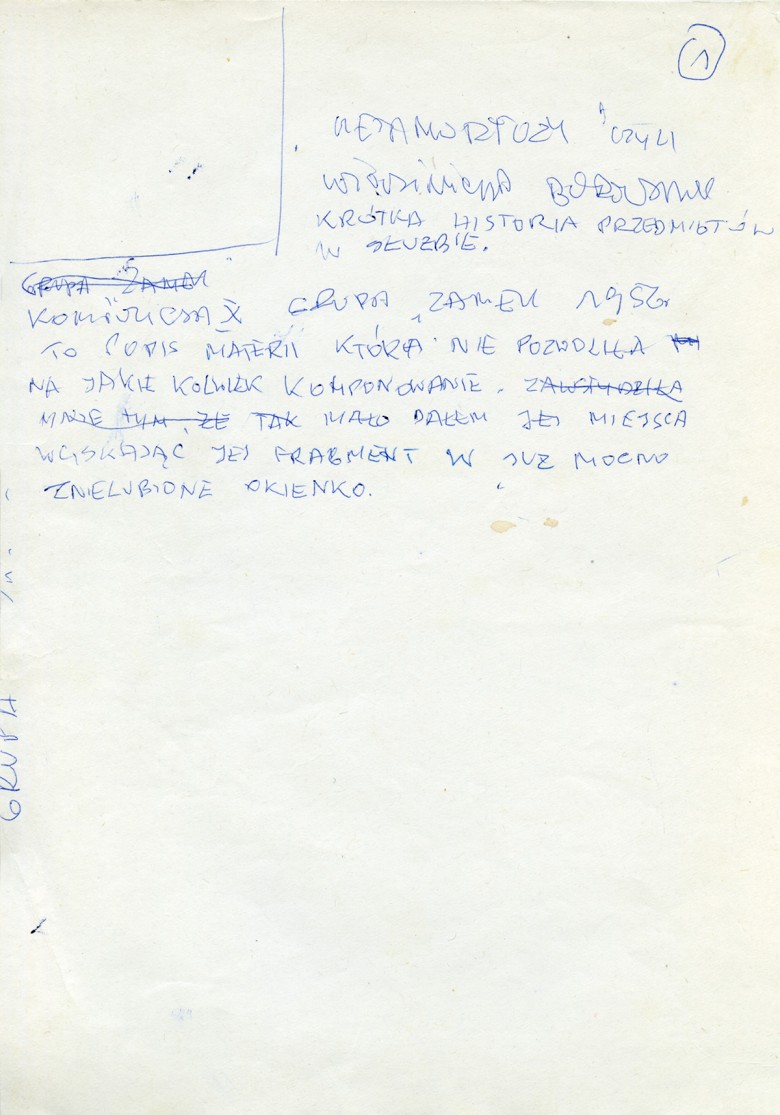 1
METAMORFOZY CZYLI
WŁODZIMIERZA BOROWSKIEGO
KRÓTKA HISTORIA PRZEDMIOTÓW
W SŁUŻBIE.
GRUPA ZAMEK
KOMPOZYCJA X GRUPA „ZAMEK 1956
TO POPIS MATERII KTÓRA NIE POZWOLIŁA
NA JAKIE KOLWIEK KOMPONOWANIE. ZAWSTYDZIŁA
MNIE TYM, ŻE TAK MAŁO DAŁEM JEJ MIEJSCA
WCISKAJĄC JEJ FRAGMENT W JUŻ MOCNO
ZNIELUBIONE OKIENKO.
GRUPA